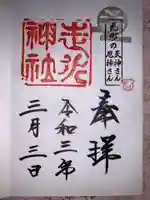 元町の天神さん
厄神さん
奉拝
走水
神社
令和三年
三月三日